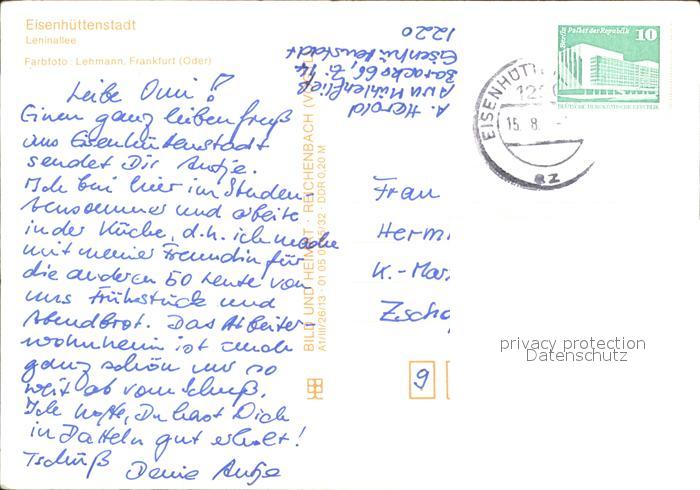 Eisenhüttenstadt
Leninallee
Farbfoto: Lehmann, Frankfurt (Oder)
Liebe Omi!
Einen ganz lieben Gruß
aus Eisenhüttenstadt
sendet Dir Antje.
Ich bin hier im Studen-
tensommer und arbeite
in der Küche, d.h. ich mache
mit meiner Freundin für
die anderen 50 Leute von
uns Frühstück und
Abendbrot. Das Arbeiter-
wohnheim ist auch
ganz schön, nur so
weit ab vom Schuß.
Ich hoffe, Du hast Dich
in Datteln gut erholt!
Tschüß Deine Antje
A. Herold
Am Mühlenfließ
Baracke 66, Zi. 14
Eisenhüttenstadt
1220
BILD UND HEIMAT REICHENBACH
A1/III/26/13 DDR 0,20 M
Berlin Palast der Republik
10
DEUTSCHE DEMOKRATISCHE REPUBLIK
EISENHÜTT
122
15. 8.
az
Frau
Herm
K.-Mar
Zscho
9
privacy protection
Datenschutz